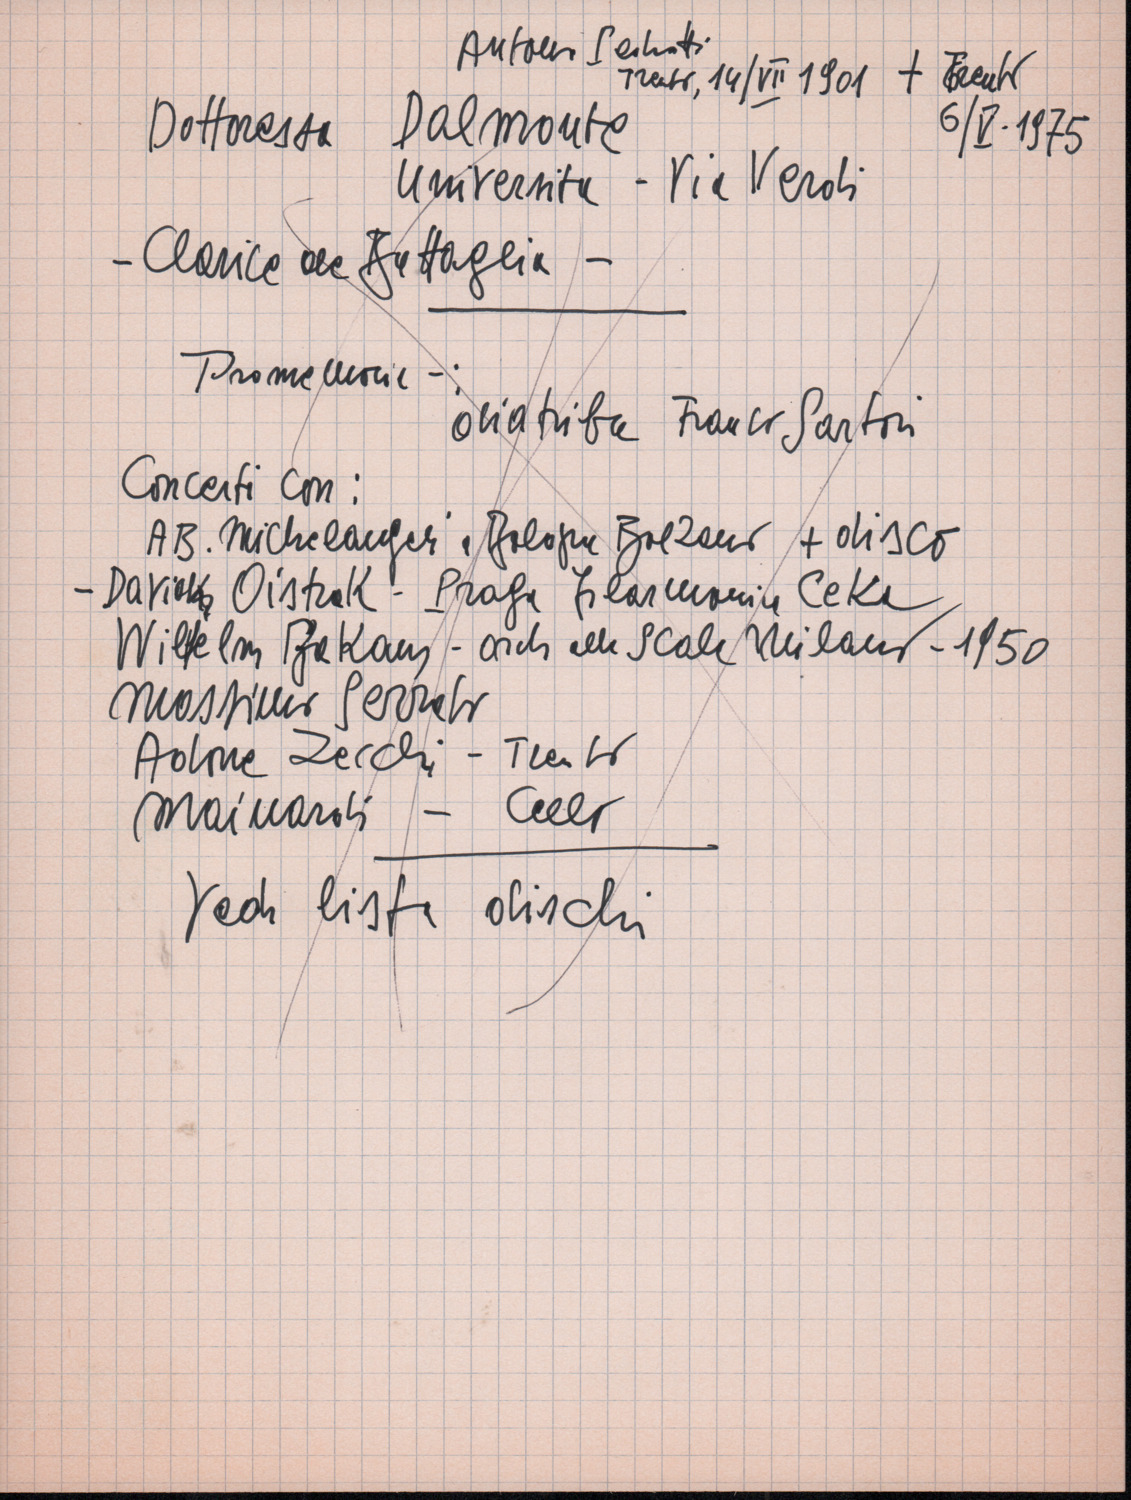 Antonio
Trento, 14/VII 1901 + Trento
6/V. 1975
Dottoressa Dalmonte
Università - Via Verdi
- Clarice de Battaglia -
Promemoria - :
diatriba Franco Sartori
Concerti con :
AB. Michelangeli . Bologna Bolzano + disco
- David Oistrak - Praga Filarmonica Ceka
Wilhelm Bakaus - orch alla Scala Milano - 1950
Massimo Serrato
Adone Zecchi - Trento
Mainardi - Cello
Vedi lista dischi